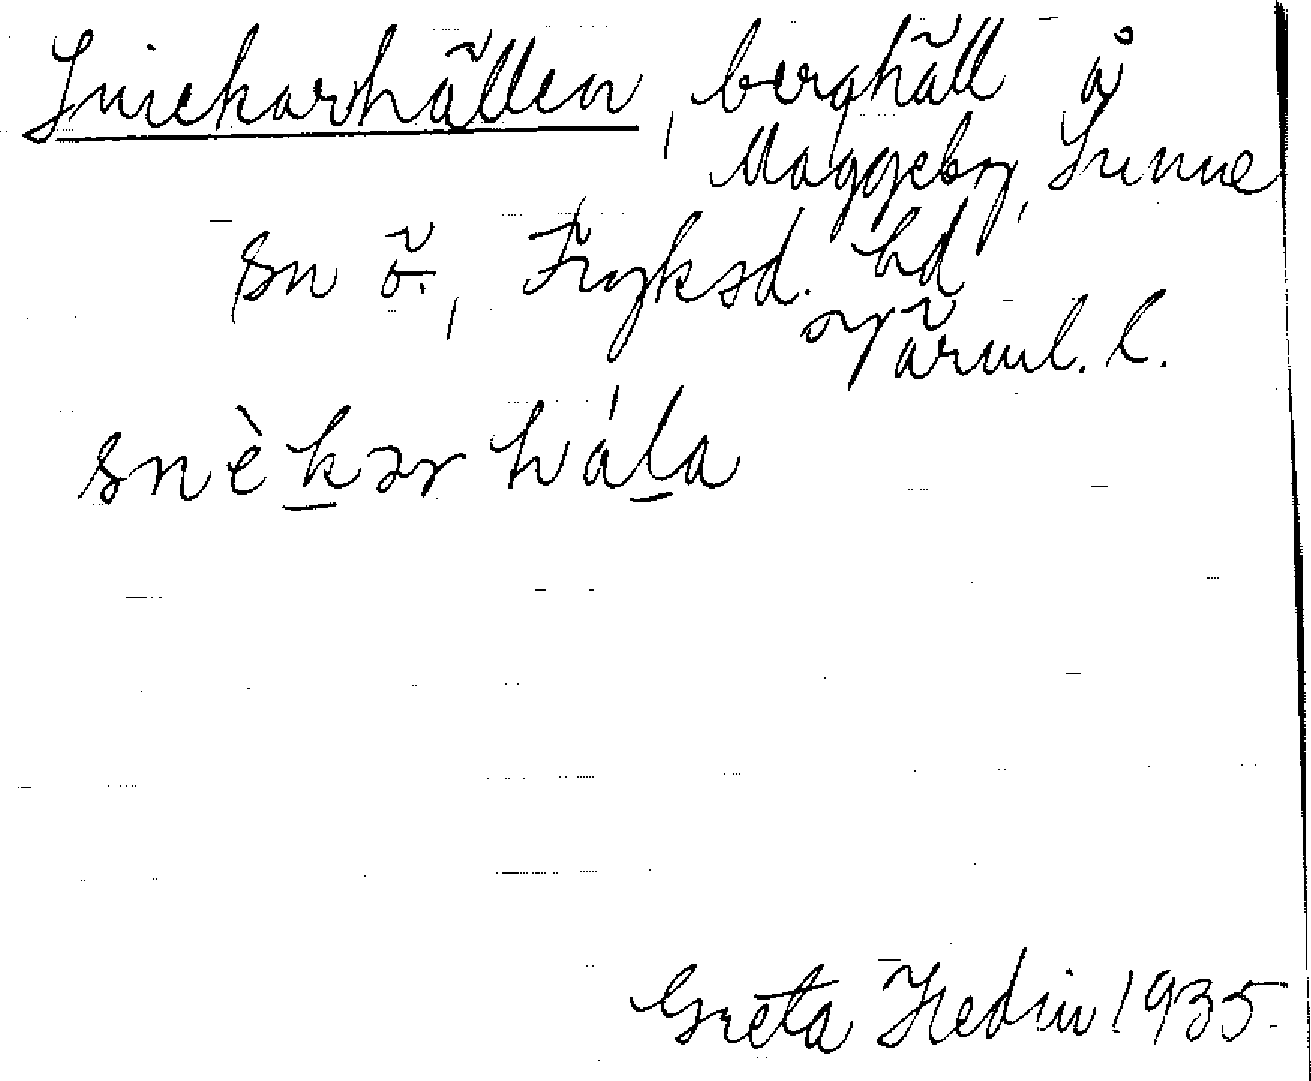 Snickarhällen, berghäll å
Maggeby, Sunne
sn ö., Fryksd. hd
Värml. l.
snèkər hála
Greta Hedin 1935.